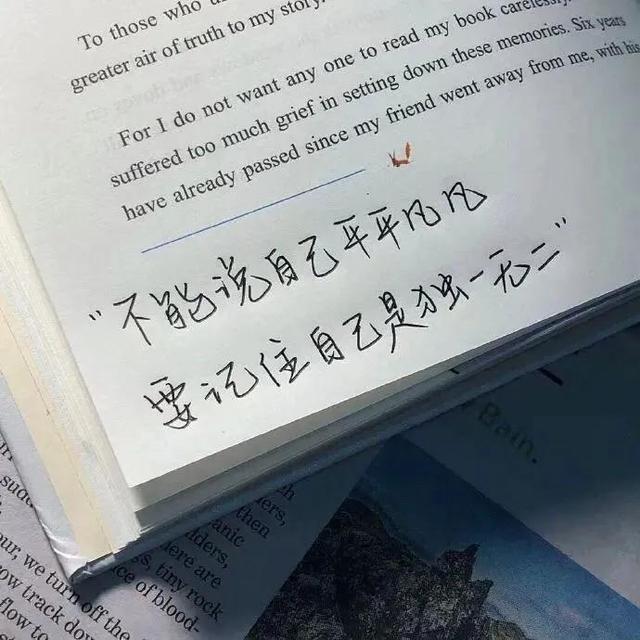 To those who
greater air of truth to my story.
For I do not want any one to read my book carelessly.
suffered too much grief in setting down these memories. Six years
have already passed since my friend went away from me, with his
"不能说自己平平凡凡
要记住自己是独一无二"
Bain.
then
anic
ere are
tiny rock
ce of blood-
our, we turn off the
ow track down
flow to